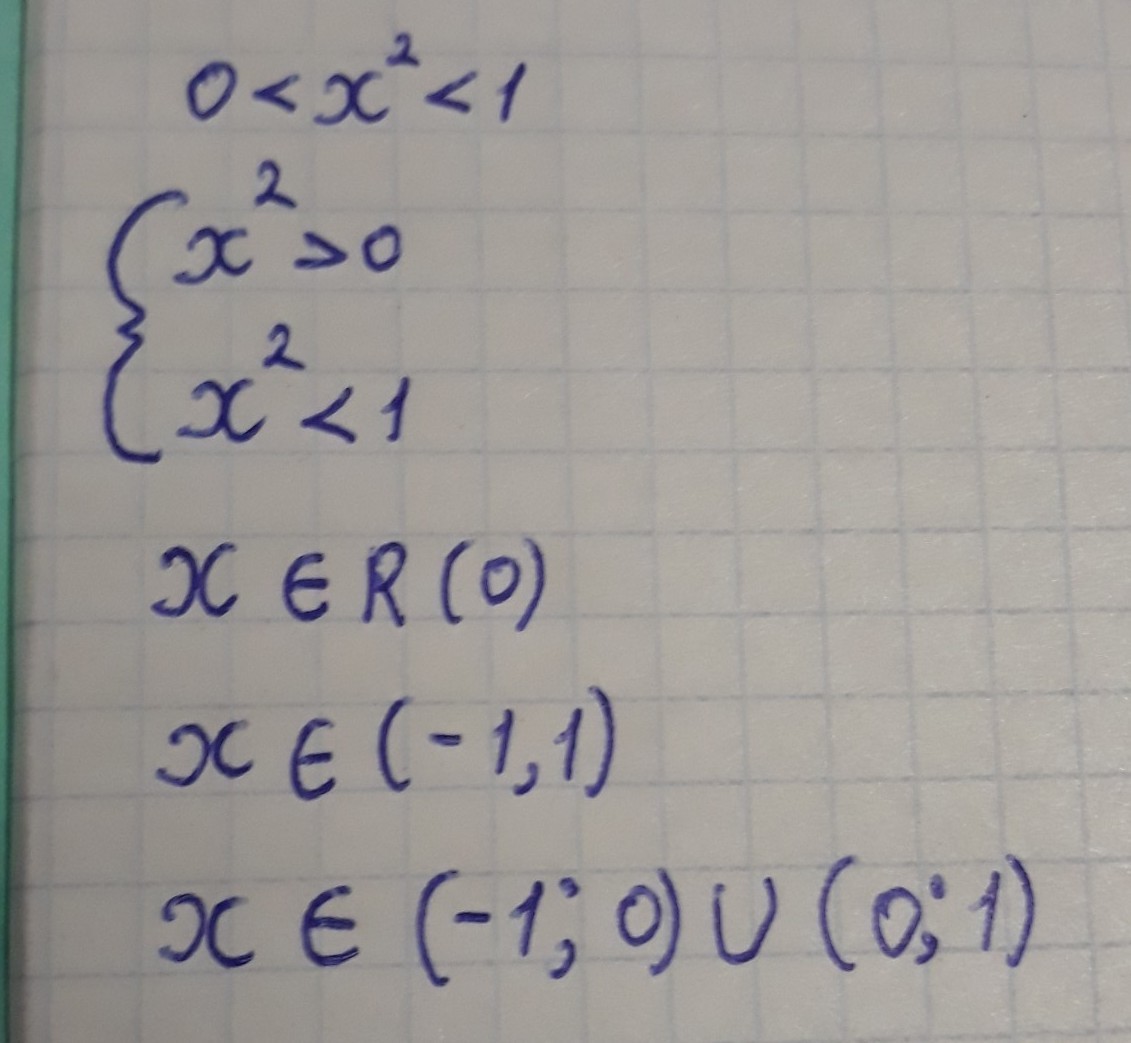 0 < x² < 1
x² > 0
x² < 1
x ∈ R (0)
x ∈ (-1,1)
x ∈ (-1; 0) ∪ (0; 1)